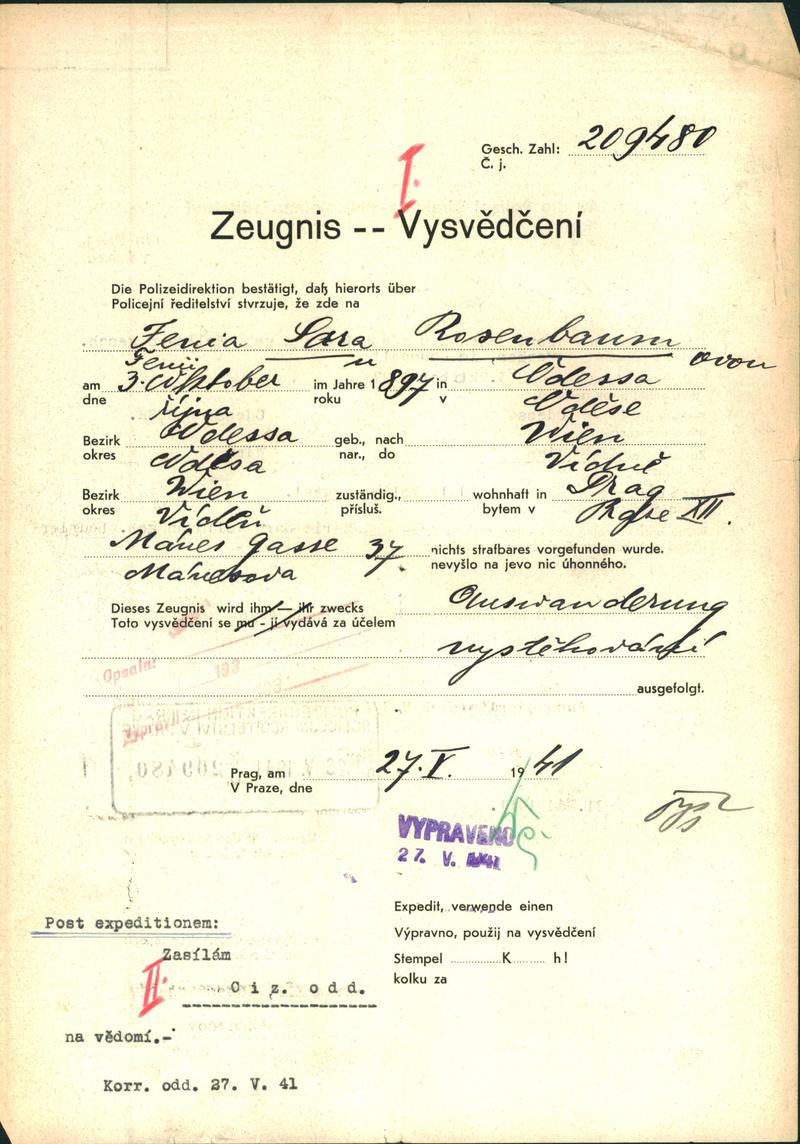 Gesch. Zahl: 209480
Č. j.
I.
Zeugnis -- Vysvědčení
Die Polizeidirektion bestätigt, daß hierorts über
Policejní ředitelství stvrzuje, že zde na
Fenia Sara Rosenbaum
Fenii ovou
am 3. Oktober im Jahre 1897 in Odessa
dne října roku v Oděse
Bezirk Odessa geb., nach Wien
okres Oděsa nar., do Vídně
Bezirk Wien zuständig., wohnhaft in Prag
okres Vídeň přísluš. bytem v Praze XII.
Mánes Gasse 37 nichts strafbares vorgefunden wurde.
Mánesova nevyšlo na jevo nic úhonného.
Dieses Zeugnis wird ihm — ihr zwecks Auswanderung
Toto vysvědčení se mu - jí vydává za účelem
vystěhování
Opsala:
193
ausgefolgt.
209480
Prag, am 27. V. 1941
V Praze, dne
VYPRAVENO
27. V. 1941
Expedit, verwende einen
Výpravno, použij na vysvědčení
Stempel K h!
kolku za
Post expeditionem:
Zasílám
II.
Ciz. odd.
na vědomí.-
Korr. odd. 27. V. 41